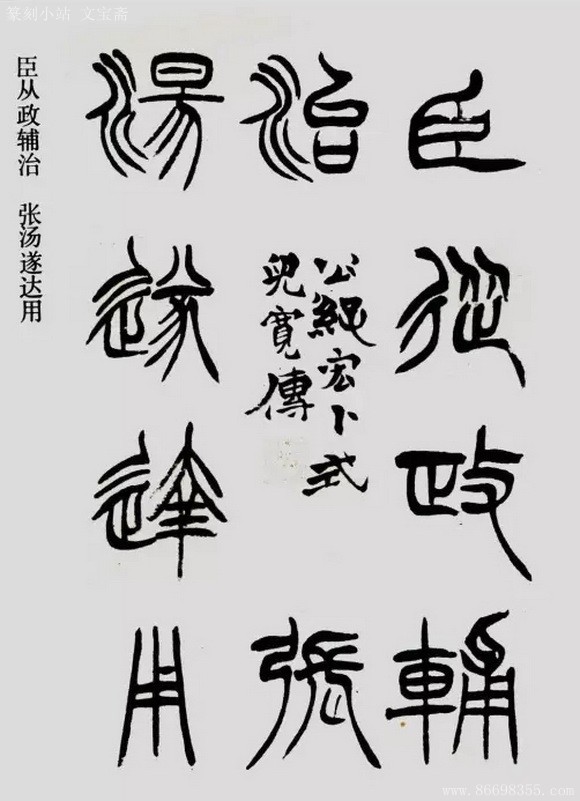 臣從政輔
治
公孫宏卜式
兒寬傳
張
湯遂達用
臣从政辅治 张汤遂达用
篆刻小站 文宝斋
www.86698355.com